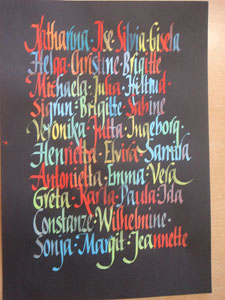 Katharina · Ilse · Silvia · Gisela
Helga · Christine · Brigitte
Michaela · Julia · Hiltrud ·
Sigrun · Brigitte · Sabine
Veronika · Jutta · Ingeborg
Henrietta · Elvira · Sandra
Antonietta · Emma · Vera
Greta · Karla · Paula · Ida
Constanze · Wilhelmine ·
Sonja · Margit · Jeannette